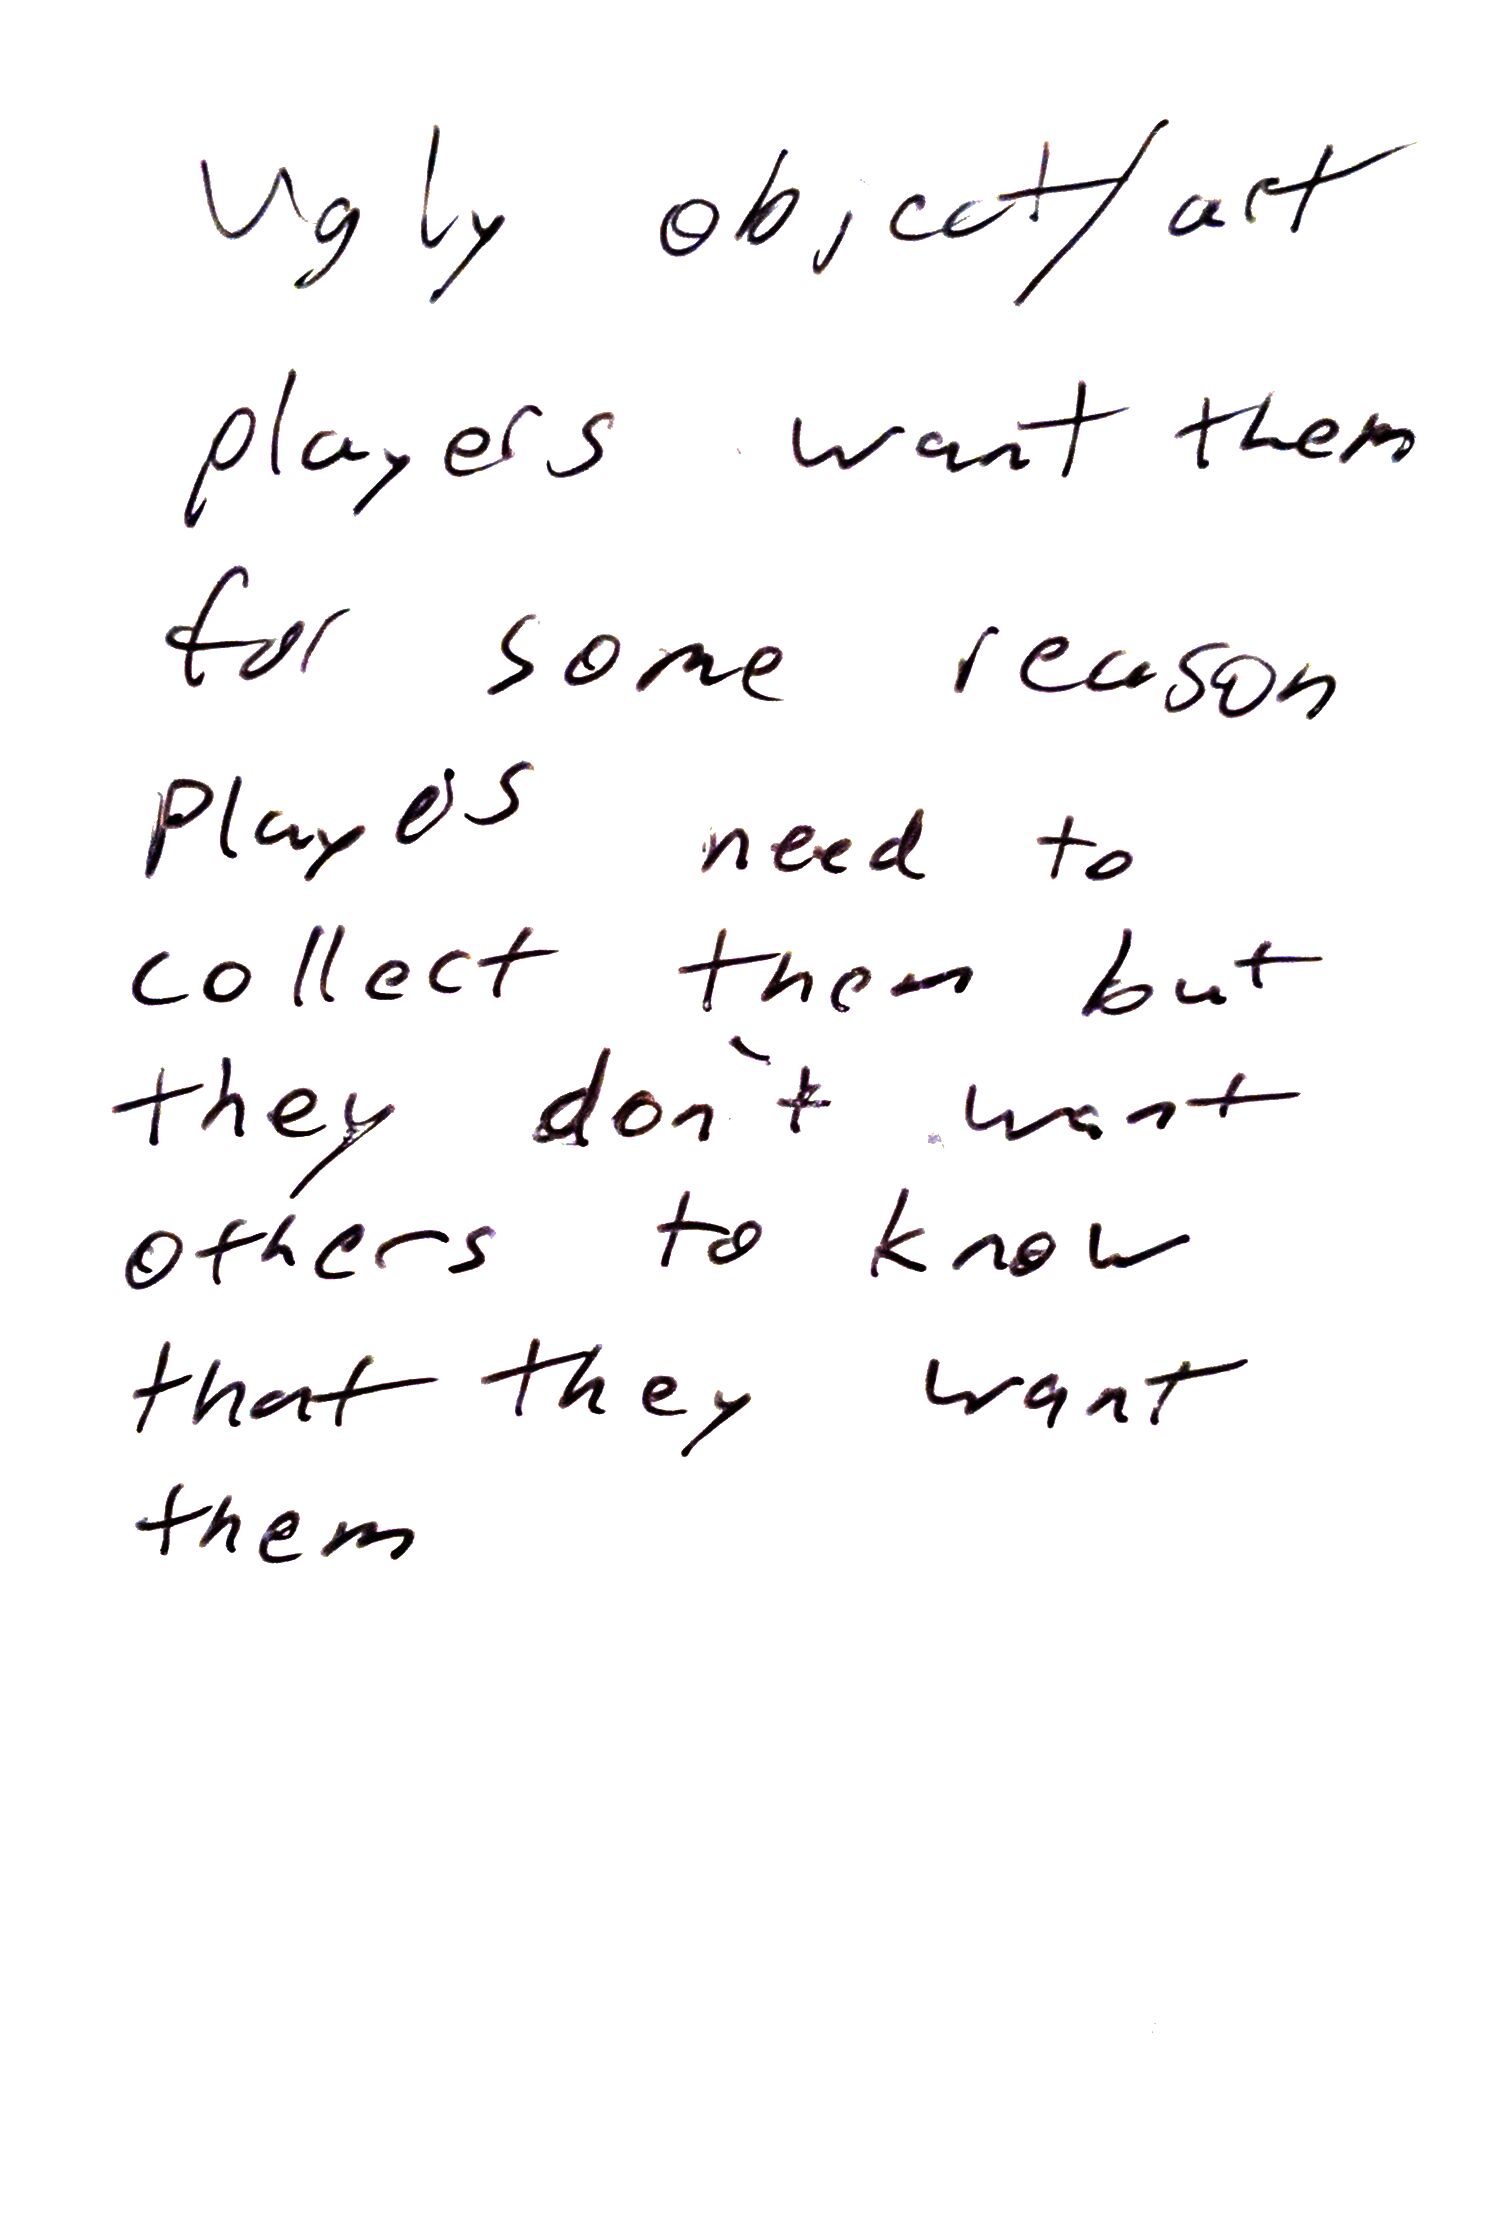 Ugly object/art
players want them
for some reason
players need to
collect them but
they don't want
others to know
that they want
them